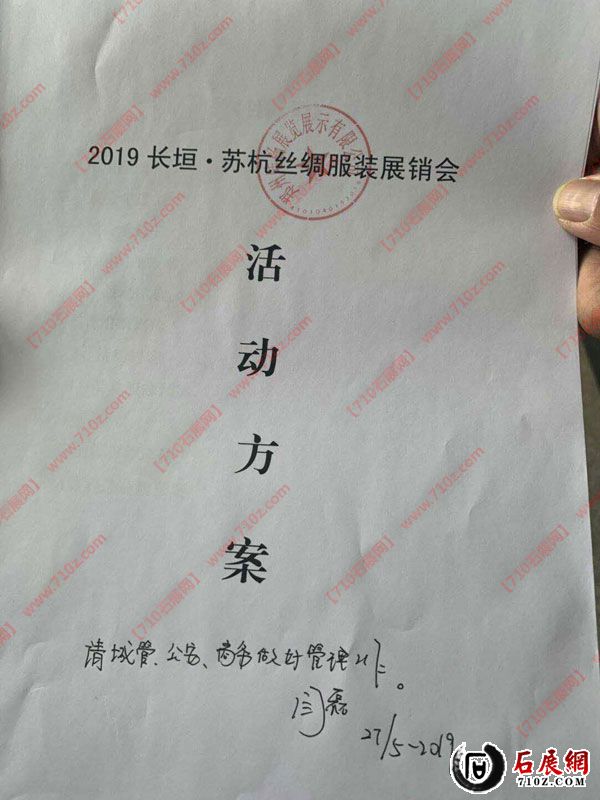 2019 长垣·苏杭丝绸服装展销会
活
动
方
案
请城管、公安、商务做好管理工作。
闫磊
27/5-2019
【710石展网】
www.710z.com
石展網
710Z.COM